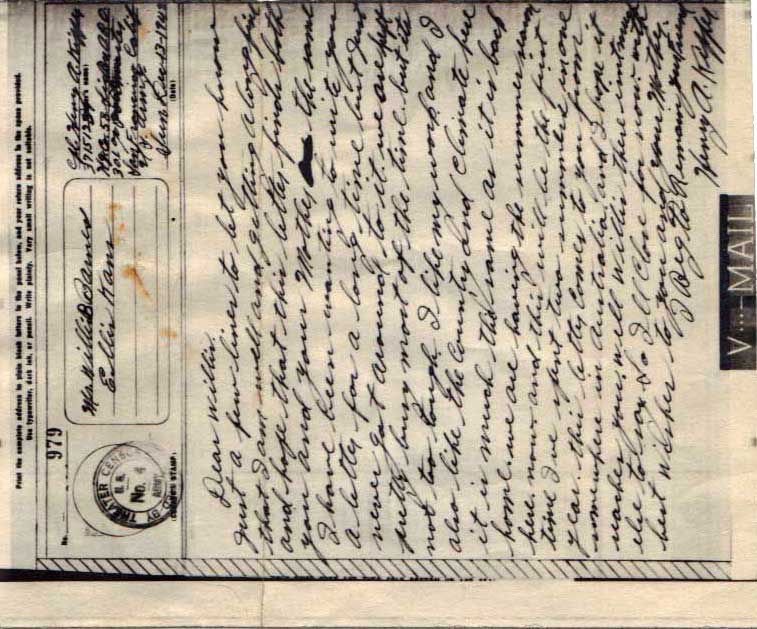 Print the complete address in plain block letters in the panel below, and your return address in the space provided.
Use typewriter, dark ink, or pencil. Write plainly. Very small writing is not suitable.
No.
979
THEATER CENSOR
U.S.
No. 4
ARMY
(CENSOR'S STAMP)
Mr Willis B Barnes
Ellis Kans
Cpl. Henry A. Kippes
(Sender's name)
(Sender's address)
Calif
Sun Dec 12-1943
(Date)
Dear Willis.
Just a few lines to let you know
that I am well and getting along fine
and hope that this letter finds both
you and your Mother the same
I have been wanting to write you
a letter for a long time but just
never got around to it we are kept
pretty busy most of the time but its
not too tough I like my work and I
also like the Country and Climate here
it is much the same as it is back
home. we are having the summer season
here now and this will be the first
time I've spent two summers in one
year. this letter comes to you from
somewhere in Australia and I hope it
reaches you, well Willis there isnt much
else to say So I'll Close for now with
best wishes to you and your Mother.
I Beg to Remain your friend
Henry A. Kippes
V···—MAIL